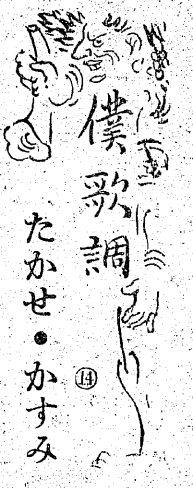 僕歌調
⑭
たかせ・かすみ